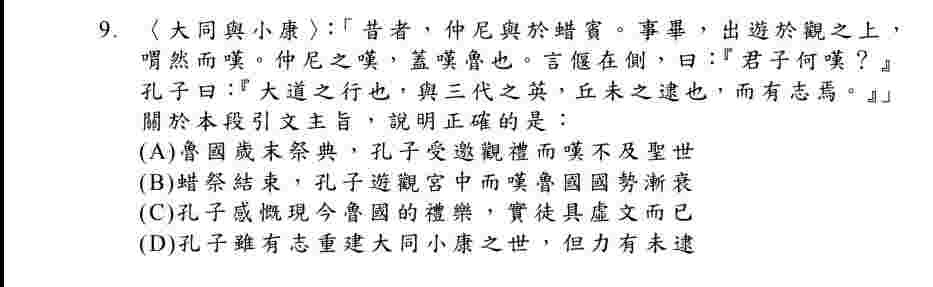 9. 〈大同與小康〉:「昔者，仲尼與於蜡賓。事畢，出遊於觀之上，
喟然而嘆。仲尼之嘆，蓋嘆魯也。言偃在側，曰:『君子何嘆？』
孔子曰:『大道之行也，與三代之英，丘未之逮也，而有志焉。』」
關於本段引文主旨，說明正確的是：
(A)魯國歲末祭典，孔子受邀觀禮而嘆不及聖世
(B)蜡祭結束，孔子遊觀宮中而嘆魯國國勢漸衰
(C)孔子感慨現今魯國的禮樂，實徒具虛文而已
(D)孔子雖有志重建大同小康之世，但力有未逮